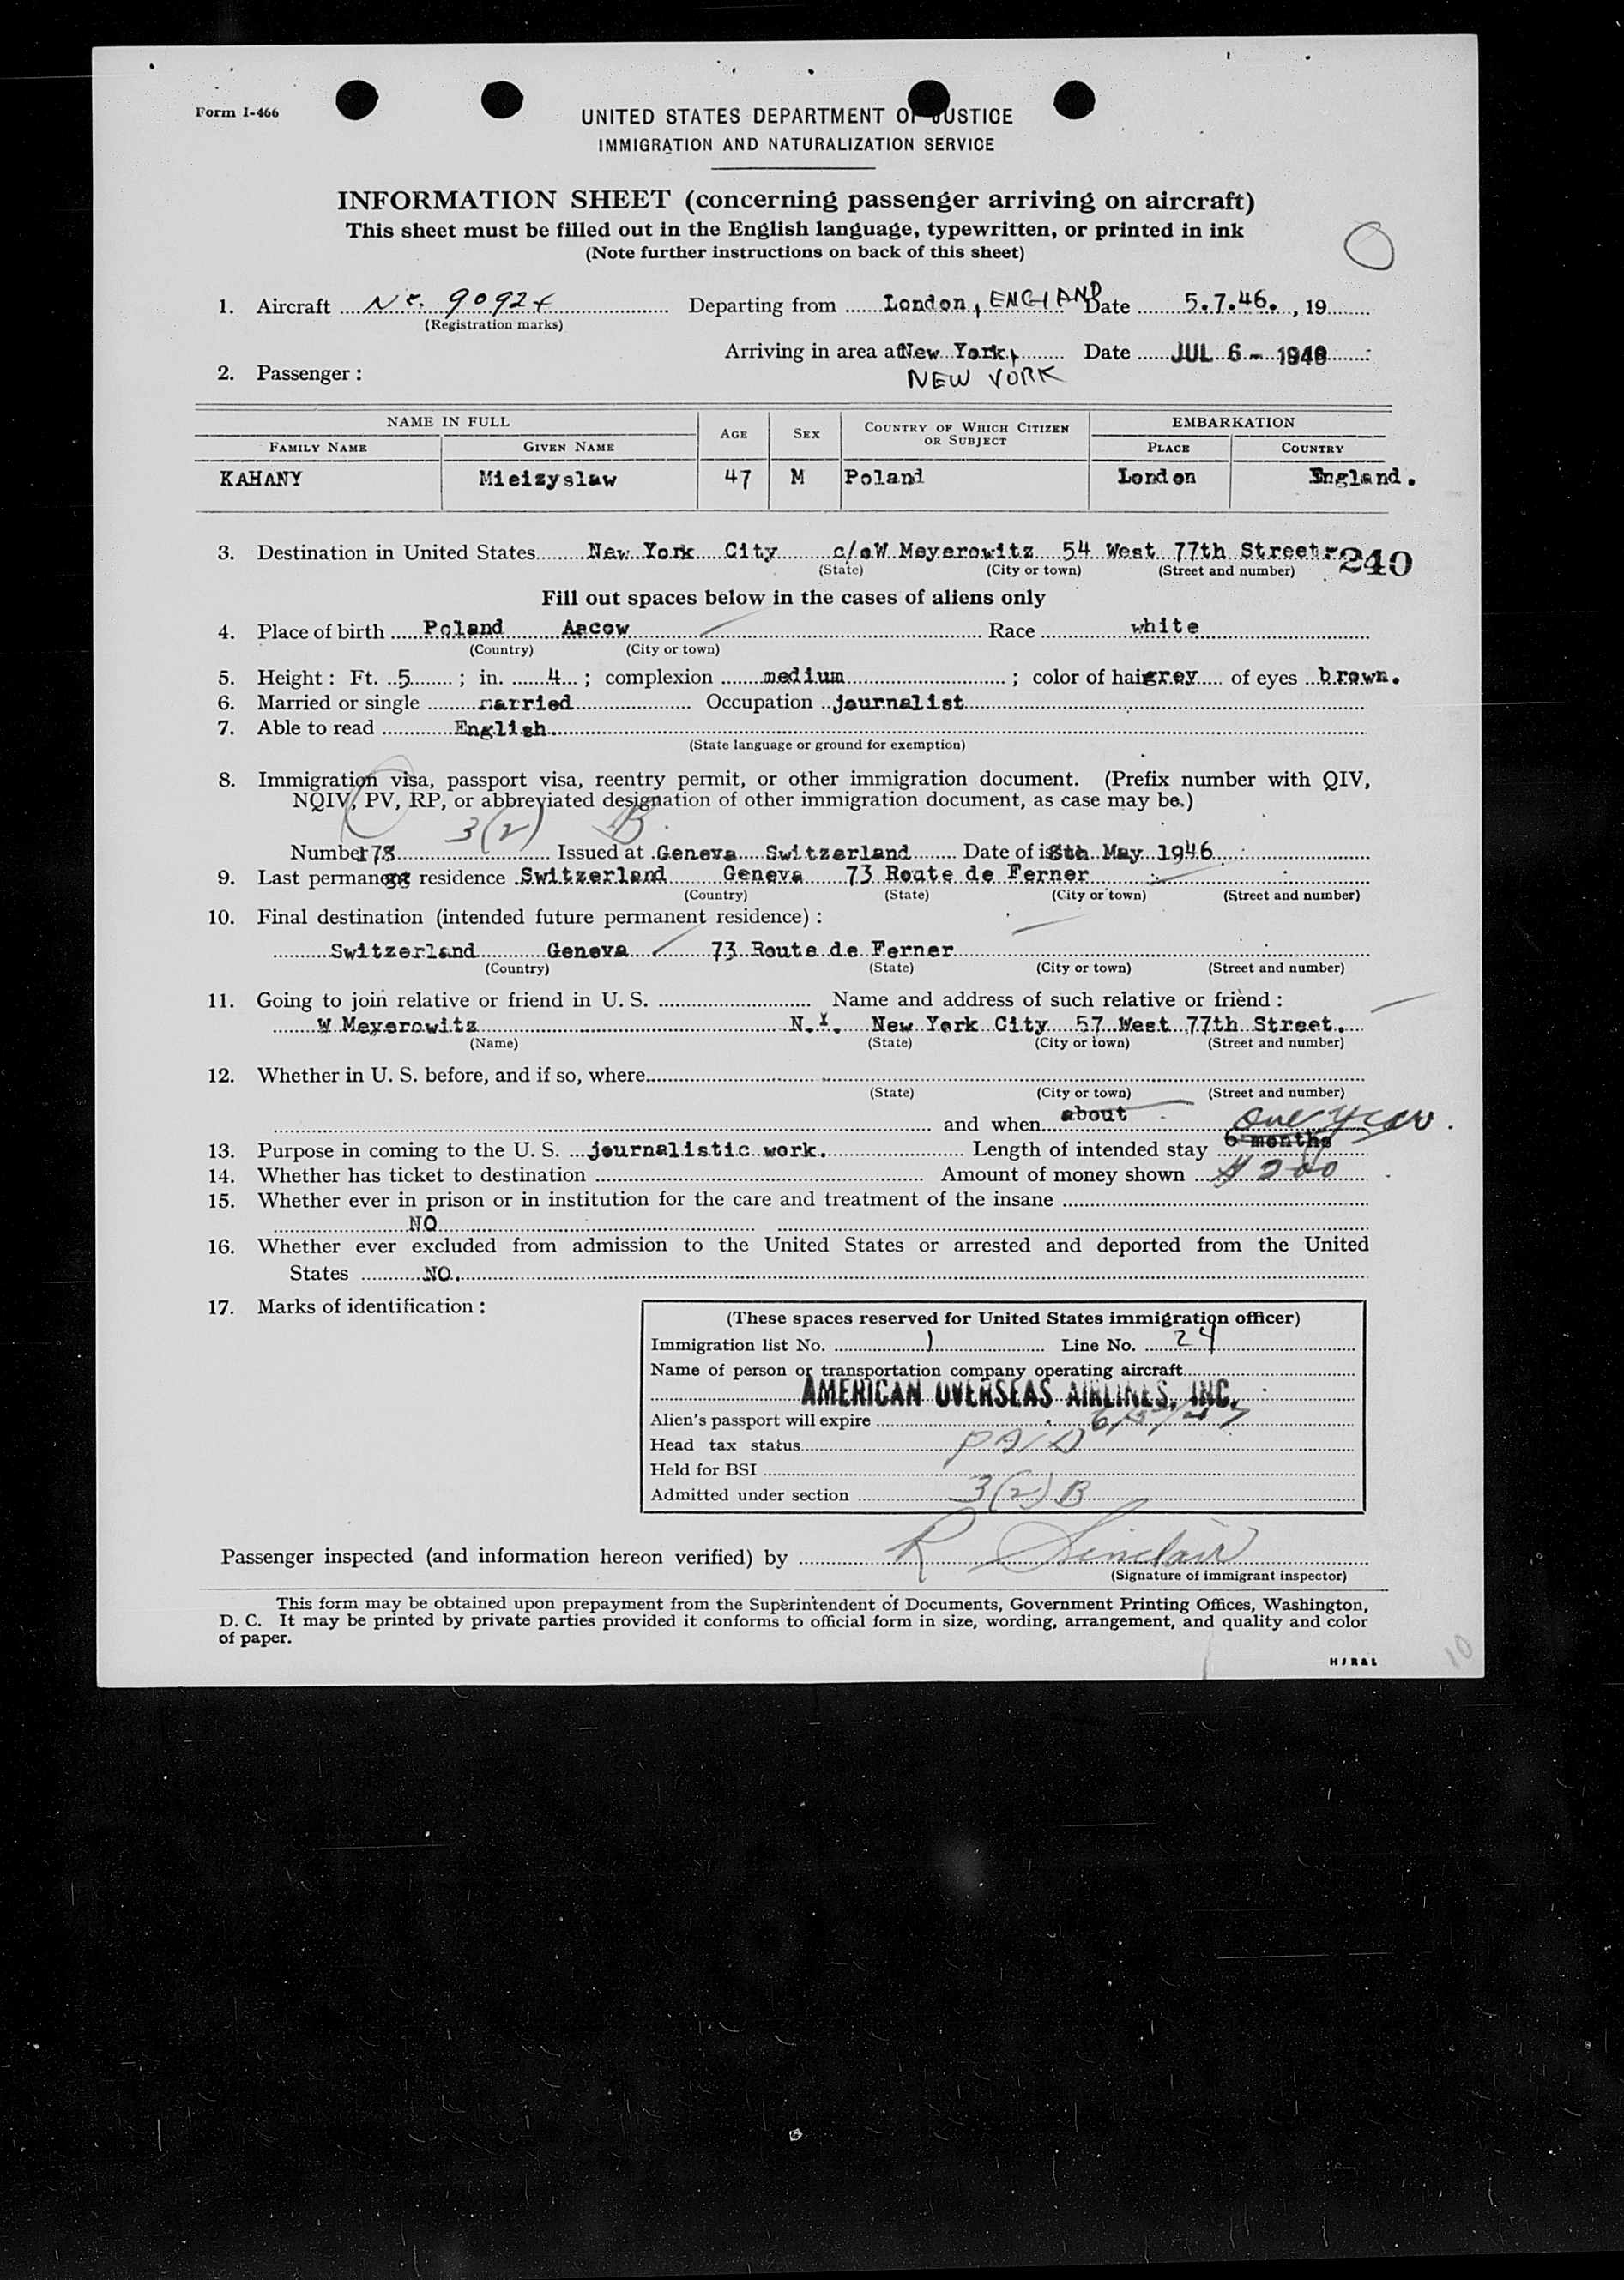 Form I-466
UNITED STATES DEPARTMENT OF JUSTICE
IMMIGRATION AND NATURALIZATION SERVICE
INFORMATION SHEET (concerning passenger arriving on aircraft)
This sheet must be filled out in the English language, typewritten, or printed in ink
(Note further instructions on back of this sheet)
1. Aircraft Departing from London, ENGLAND Date 5.7.46., 19
(Registration marks)
Arriving in area at New York, Date JUL 6 - 1946
NEW YORK
2. Passenger :
NAME IN FULL AGE SEX COUNTRY OF WHICH CITIZEN OR SUBJECT EMBARKATION
FAMILY NAME GIVEN NAME PLACE COUNTRY
KAHANY Mieizyslaw 47 M Poland London England.
3. Destination in United States New York City c/o W Meyerowitz 54 West 77th Street. 240
(State) (City or town) (Street and number)
Fill out spaces below in the cases of aliens only
4. Place of birth Poland Aacow Race white
(Country) (City or town)
5. Height : Ft. 5 ; in. 4 ; complexion medium ; color of hair grey of eyes brown.
6. Married or single married Occupation journalist
7. Able to read English.
(State language or ground for exemption)
8. Immigration visa, passport visa, reentry permit, or other immigration document. (Prefix number with QIV,
NQIV, PV, RP, or abbreviated designation of other immigration document, as case may be.)
3(2) B
Number 178 Issued at Geneva Switzerland Date of is 8th May 1946
9. Last permanent residence Switzerland Geneva 73 Route de Ferner
(Country) (State) (City or town) (Street and number)
10. Final destination (intended future permanent residence) :
Switzerland Geneva 73 Route de Ferner
(Country) (State) (City or town) (Street and number)
11. Going to join relative or friend in U. S. Name and address of such relative or friend :
W Meyerowitz N.Y. New York City 57 West 77th Street.
(Name) (State) (City or town) (Street and number)
12. Whether in U. S. before, and if so, where
(State) (City or town) (Street and number)
and when about one year.
13. Purpose in coming to the U. S. journalistic work. Length of intended stay 6 months
14. Whether has ticket to destination Amount of money shown $200
15. Whether ever in prison or in institution for the care and treatment of the insane
NO
16. Whether ever excluded from admission to the United States or arrested and deported from the United
States NO.
17. Marks of identification :
(These spaces reserved for United States immigration officer)
Immigration list No. 1 Line No. 24
Name of person or transportation company operating aircraft
AMERICAN OVERSEAS AIRLINES, INC.
Alien's passport will expire
Head tax status PAID
Held for BSI
Admitted under section 3(2) B
Passenger inspected (and information hereon verified) by R Sinclair
(Signature of immigrant inspector)
This form may be obtained upon prepayment from the Superintendent of Documents, Government Printing Offices, Washington,
D. C. It may be printed by private parties provided it conforms to official form in size, wording, arrangement, and quality and color
of paper.
H J R & L
10